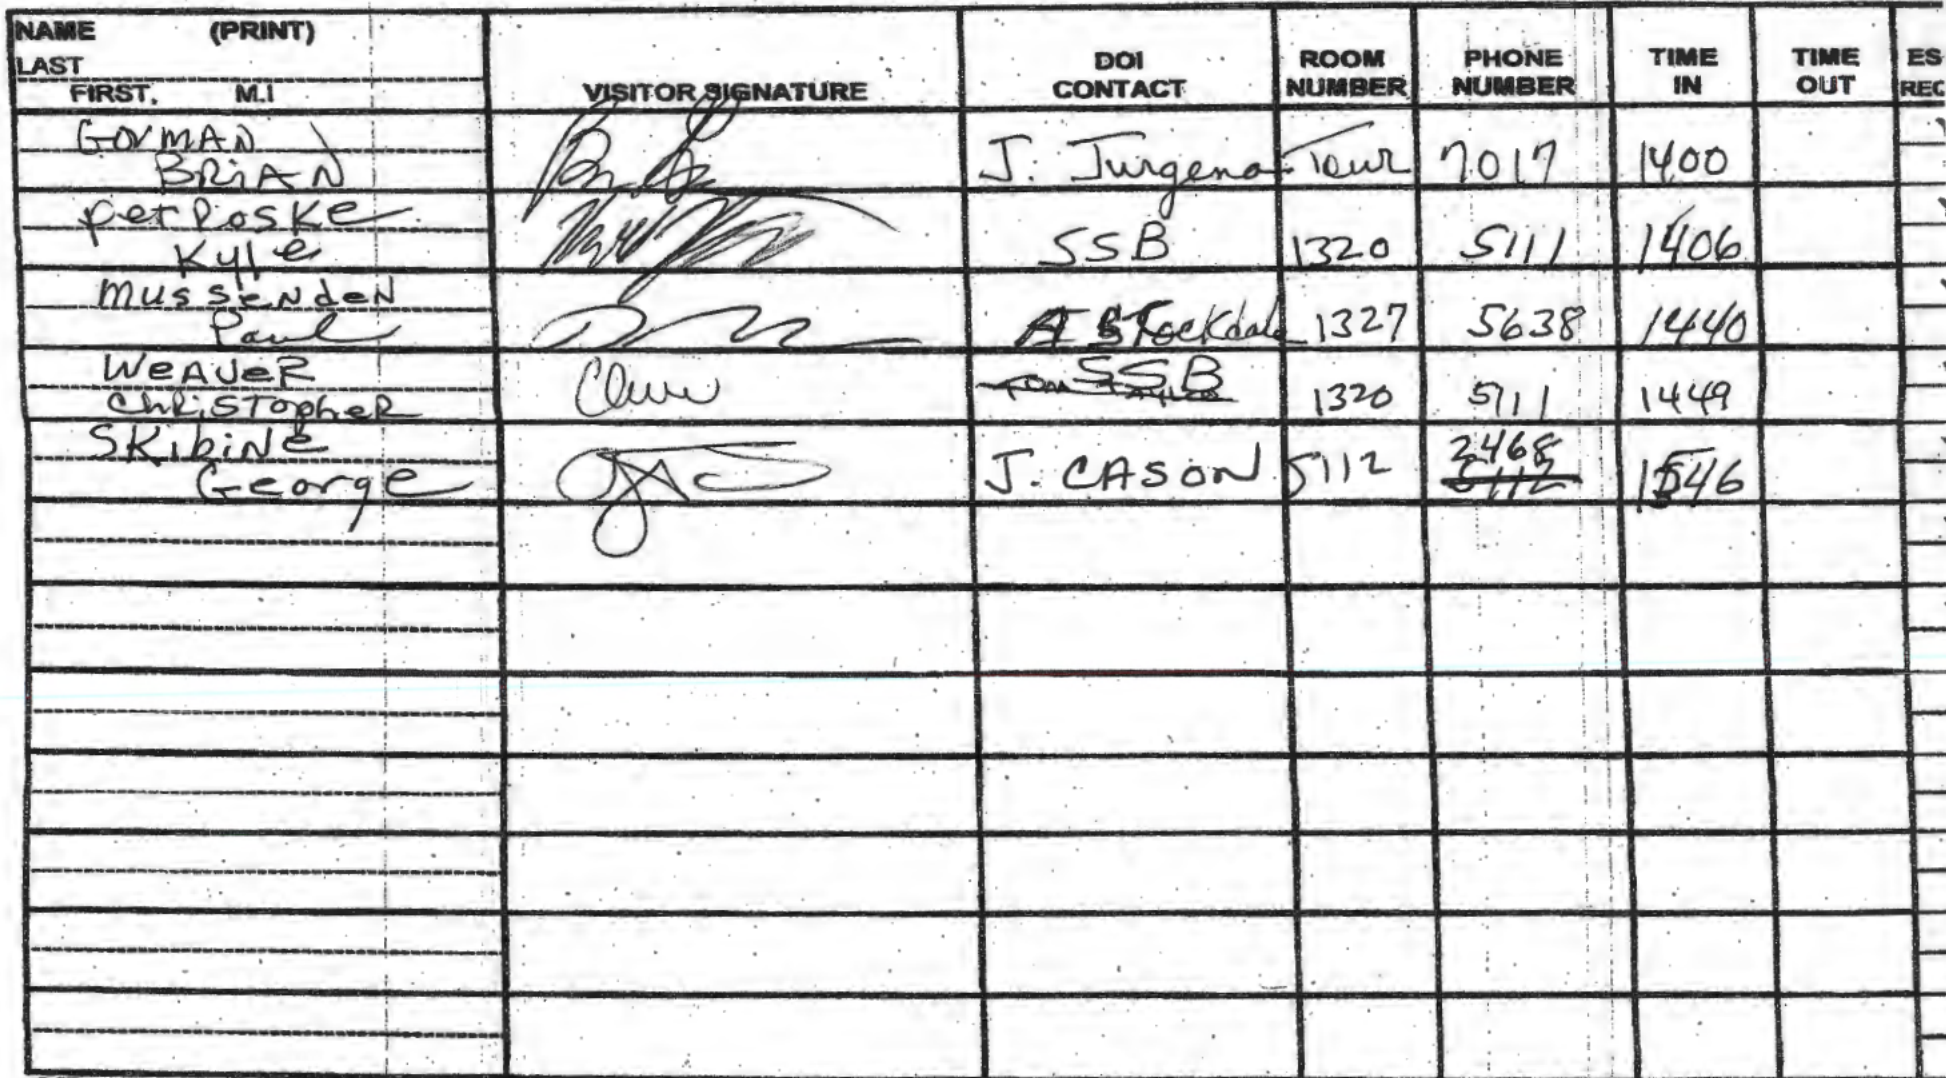 NAME (PRINT)
LAST
FIRST, M.I
VISITOR SIGNATURE
DOI
CONTACT
ROOM
NUMBER
PHONE
NUMBER
TIME
IN
TIME
OUT
ES
REC
GORMAN
BRIAN
J. Jurgena Tour 7017 1400
petroske
Kyle
SSB 1320 5111 1406
mussenden
Paul
A Stockdale 1327 5638 1440
WEAVER
Christopher
SSB
1320 5711 1449
SKibine
George
J. CASON 5112 2468 1546
5112